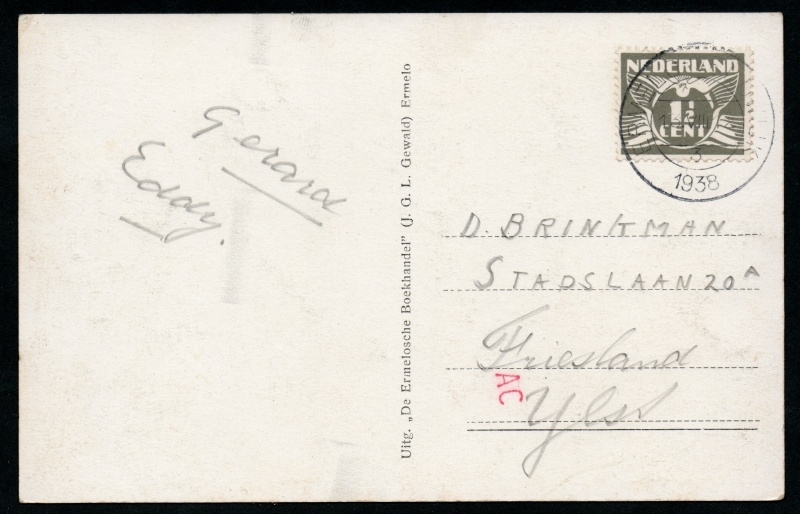 Gerard
Eddy.
Uitg. „De Ermelosche Boekhandel" (J. G. L. Gewald) Ermelo
NEDERLAND
1½
CENT
3
1938
D. BRINKMAN
STADSLAAN 20 A
Friesland
AC
Ylst